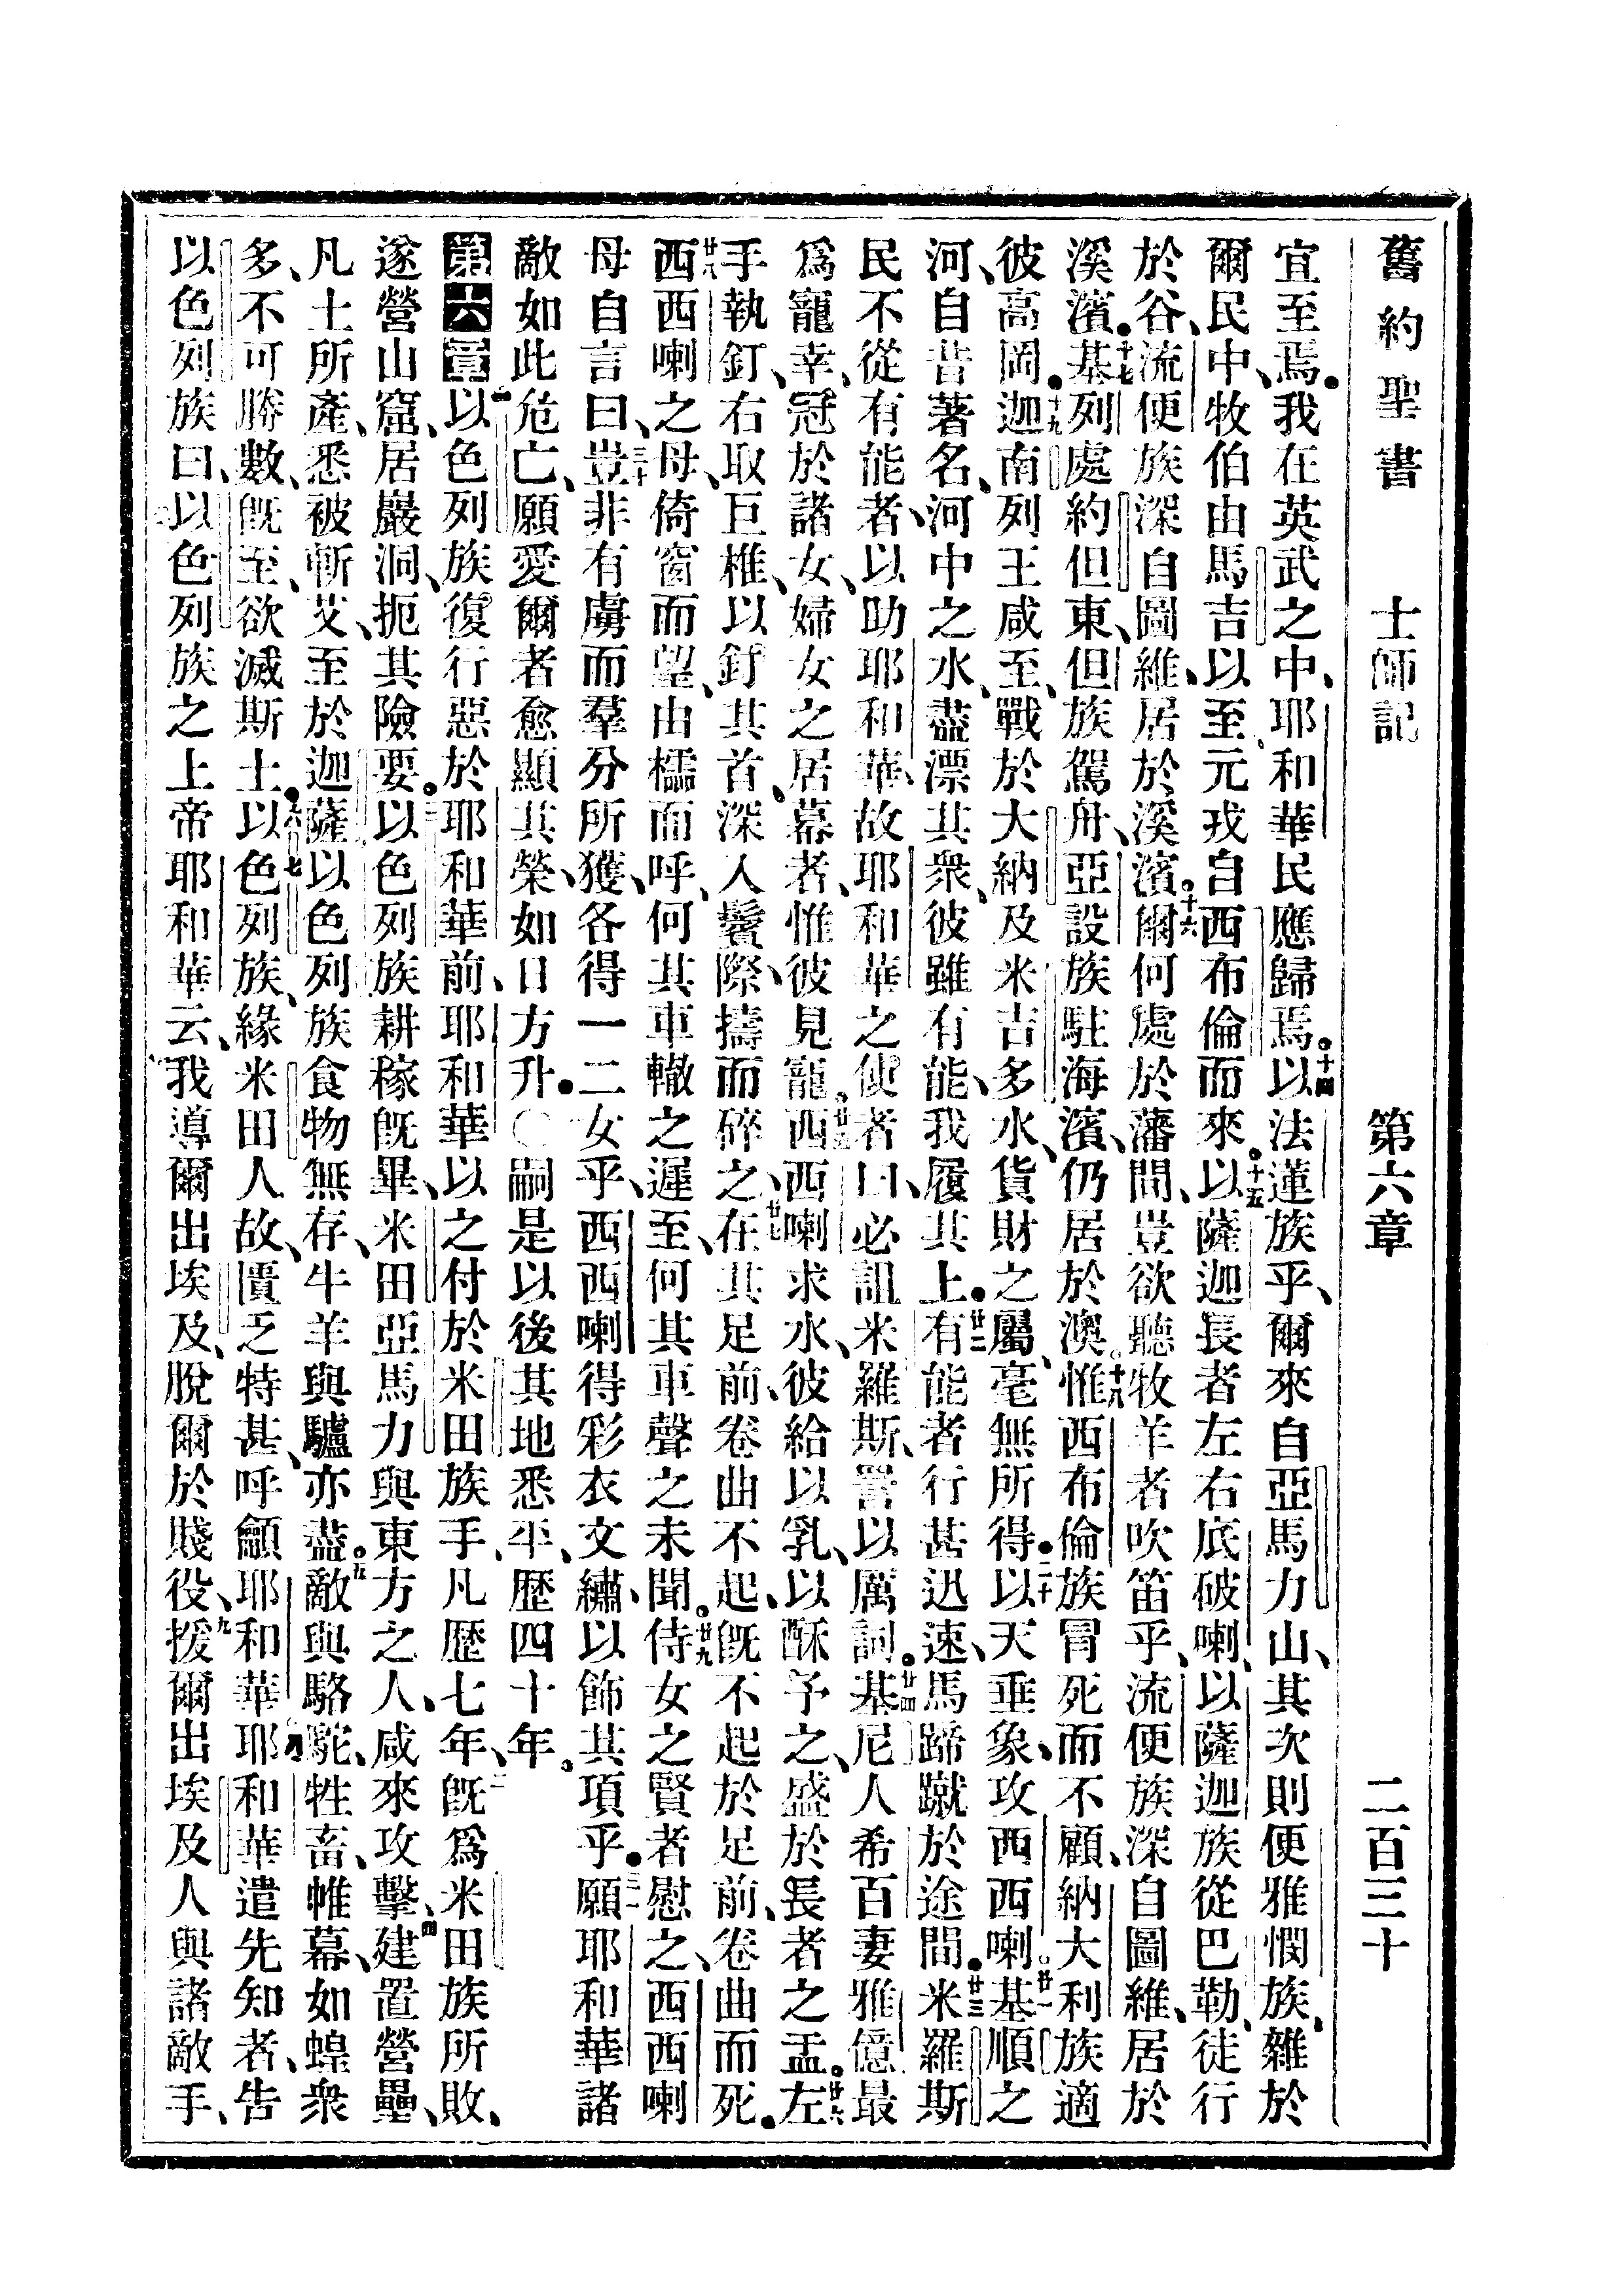 舊約聖書 士師記 第六章 二百三十
宜至焉。我在英武之中、耶和華民應歸焉。十四以法蓮族乎、爾來自亞馬力山、其次則便雅憫族、雜於
爾民中、牧伯由馬吉以至、元戎自西布倫而來。十五以薩迦長者左右底破喇、以薩迦族從巴勒、徒行
於谷、流便族深自圖維、居於溪濱。十六爾何處於藩間、豈欲聽牧羊者吹笛乎、流便族深自圖維、居於
溪濱。十七基列處約但東、但族駕舟、亞設族駐海濱、仍居於澳。十八惟西布倫族冒死而不顧、納大利族適
彼高岡。十九迦南列王咸至、戰於大納及米吉多水、貨財之屬、毫無所得。二十以天垂象、攻西西喇。廿一基順之
河、自昔著名、河中之水、盡漂其衆、彼雖有能、我履其上。廿二有能者行甚迅速、馬蹄蹴於途間。廿三米羅斯
民不從有能者、以助耶和華、故耶和華之使者曰、必詛米羅斯、詈以厲詞。廿四基尼人希百妻雅億最
爲寵幸、冠於諸女、婦女之居幕者、惟彼見寵。廿五西西喇求水、彼給以乳、以酥予之、盛於長者之盂。廿六左
手執釘、右取巨椎、以釘其首、深入鬢際、擣而碎之、廿七在其足前、卷曲不起、旣不起於足前、卷曲而死。
廿八西西喇之母、倚窗而望、由櫺而呼、何其車轍之遲至、何其車聲之未聞。廿九侍女之賢者慰之、西西喇
母自言曰、三十豈非有虜而羣分所獲、各得一二女乎、西西喇得彩衣文繡、以飾其項乎。三一願耶和華諸
敵如此危亡、願愛爾者愈顯其榮、如日方升。○嗣是以後其地悉平、歷四十年。
第六章 一以色列族、復行惡於耶和華前、耶和華以之付於米田族手、凡歷七年、二旣爲米田族所敗、
遂營山窟、居巖洞、扼其險要。三以色列族耕稼旣畢、米田亞馬力與東方之人、咸來攻擊、四建置營壘、
凡土所產、悉被斬艾、至於迦薩、以色列族食物無存、牛羊與驢亦盡。五敵與駱駝、牲畜、帷幕、如蝗衆
多、不可勝數、旣至、欲滅斯土。六以色列族、緣米田人故、匱乏特甚、呼籲耶和華。七耶和華遣先知者、告
以色列族曰、以色列族之上帝耶和華云、我導爾出埃及、脫爾於賤役、九援爾出埃及人與諸敵手、